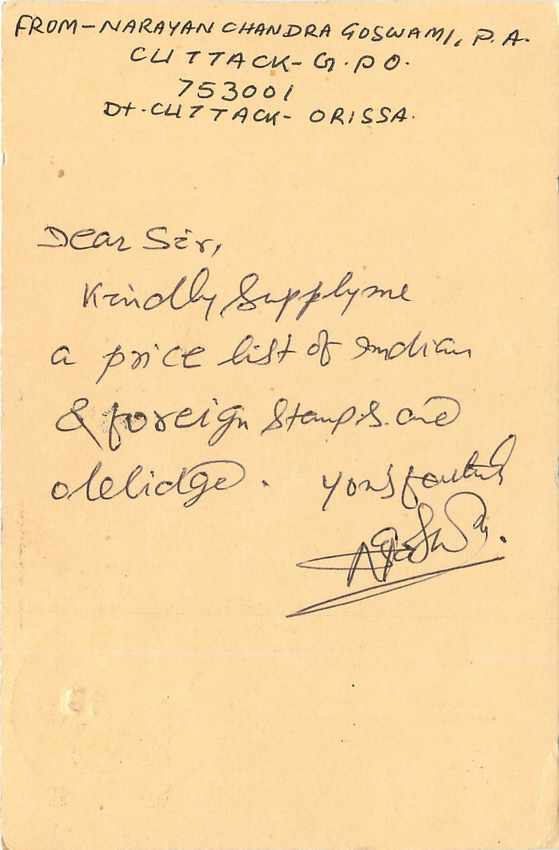 FROM-NARAYAN CHANDRA GOSWAMI, P.A.
CUTTACK-G.P.O.
753001
Dt-CUTTACK- ORISSA.
Dear Sir,
Kindly supply me
a price list of Indian
& foreign stamps. and
oblidge. yours